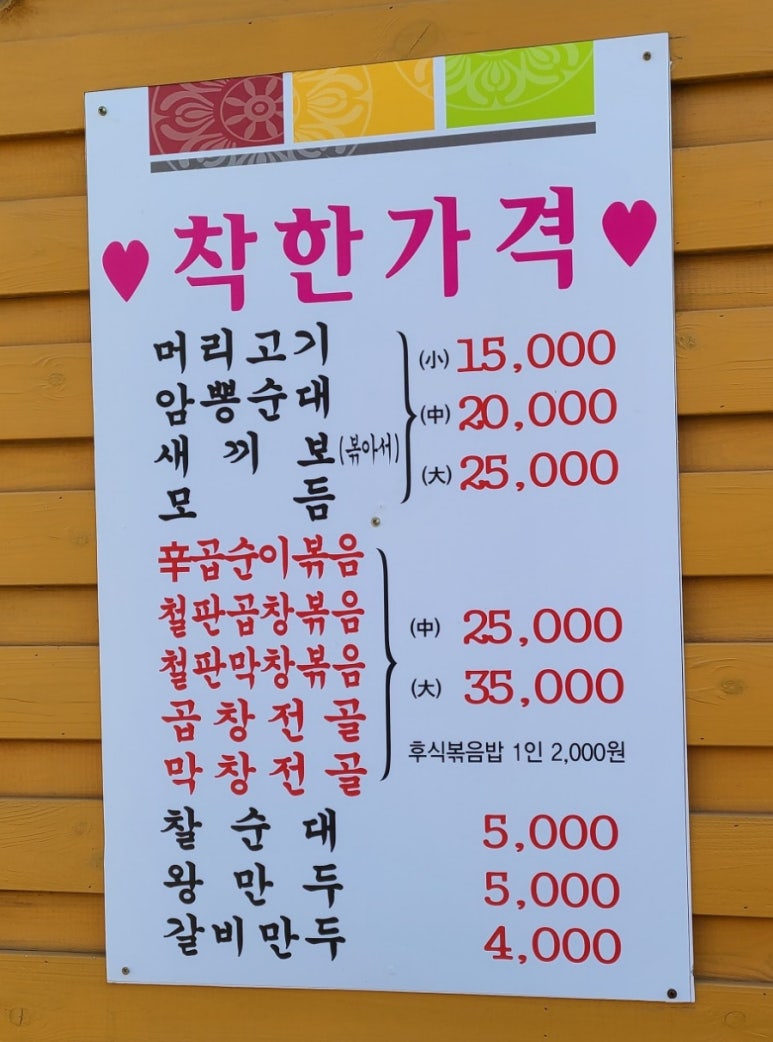 ♥ 착한가격 ♥
머리고기
암뽕순대
새끼보(볶아서)
모듬
(小) 15,000
(中) 20,000
(大) 25,000
辛곱순이볶음
철판곱창볶음
철판막창볶음
곱창전골
막창전골
(中) 25,000
(大) 35,000
후식볶음밥 1인 2,000원
찰순대 5,000
왕만두 5,000
갈비만두 4,000